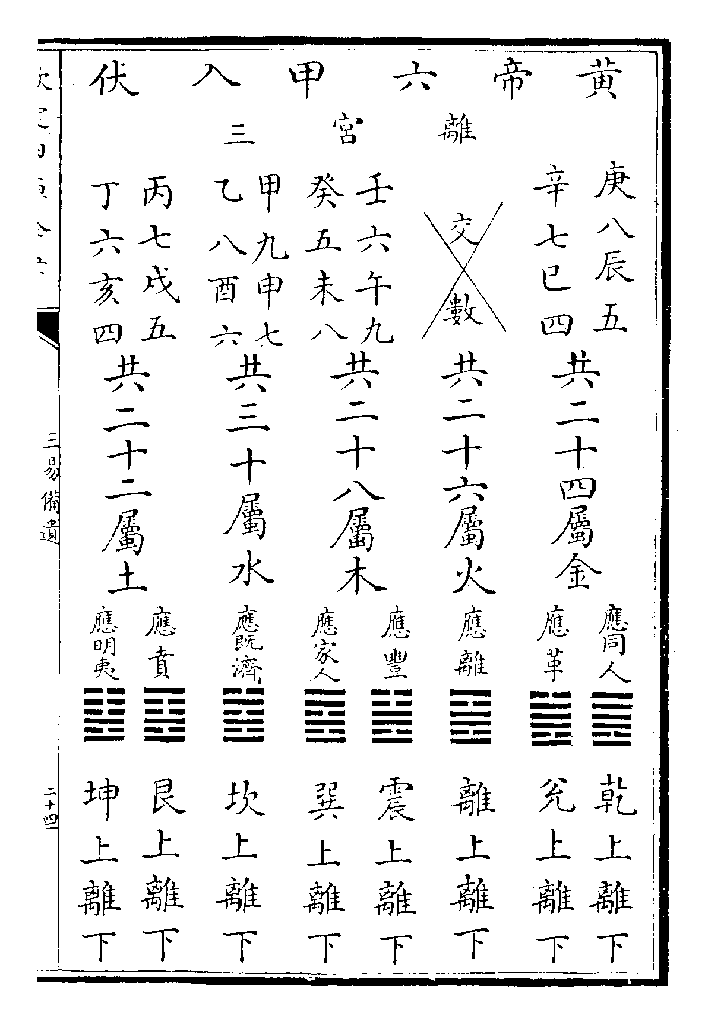 黄帝六甲入伏
離宮三
庚八辰五
辛七巳四
共二十四屬金
應同人
應革
乾上離下
兊上離下
交數
共二十六屬火
應離
離上離下
壬六午九
癸五未八
共二十八屬木
應豐
應家人
震上離下
巽上離下
甲九申七
乙八酉六
共三十屬水
應既濟
坎上離下
丙七戌五
丁六亥四
共二十二屬土
應賁
應明夷
艮上離下
坤上離下
三易備遺
二十四